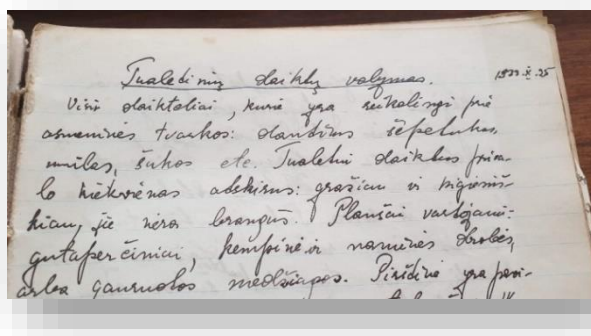 Tualetinių daiktų valymas. 1933.X.25
Visi daiktaliai, kurie yra reikalingi prie
asmeninės tvarkos: dantims šepetukas,
muilas, šukos etc. Tualetui daiktus priva-
lo kiekvienas atskirus: gražiau ir higieniš-
kiau, jie nėra brangūs. Plaušai vartojami:
gutaperčiniai, kempinė ir naminės drobės,
arba gauruotos medžiagos. Pirštinė yra